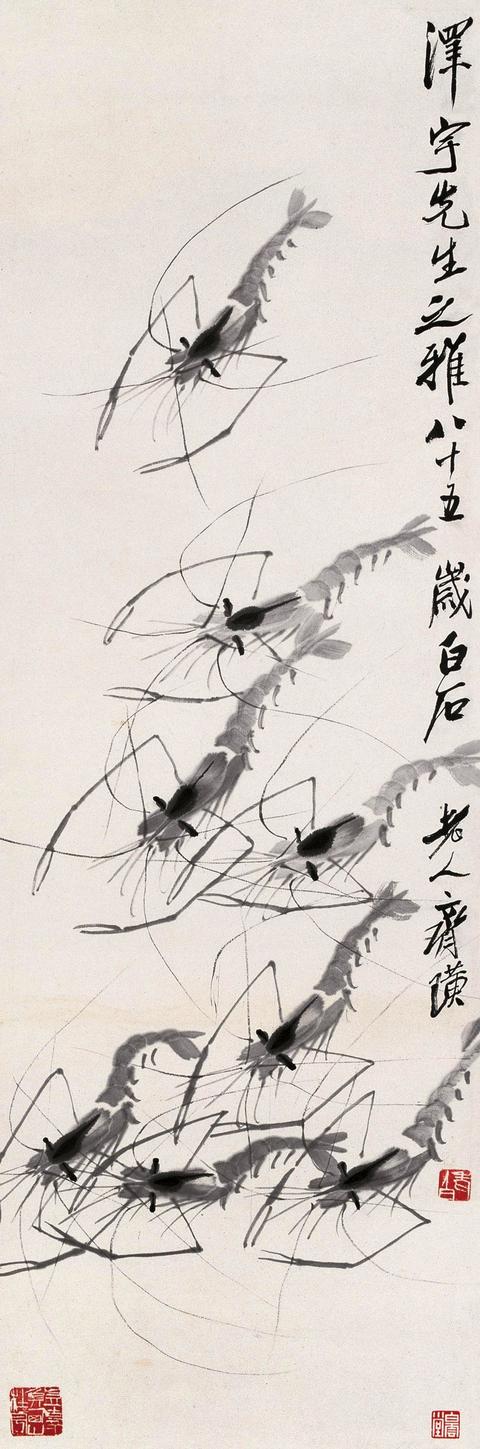 澤宇先生之雅八十五歲白石老人齊璜